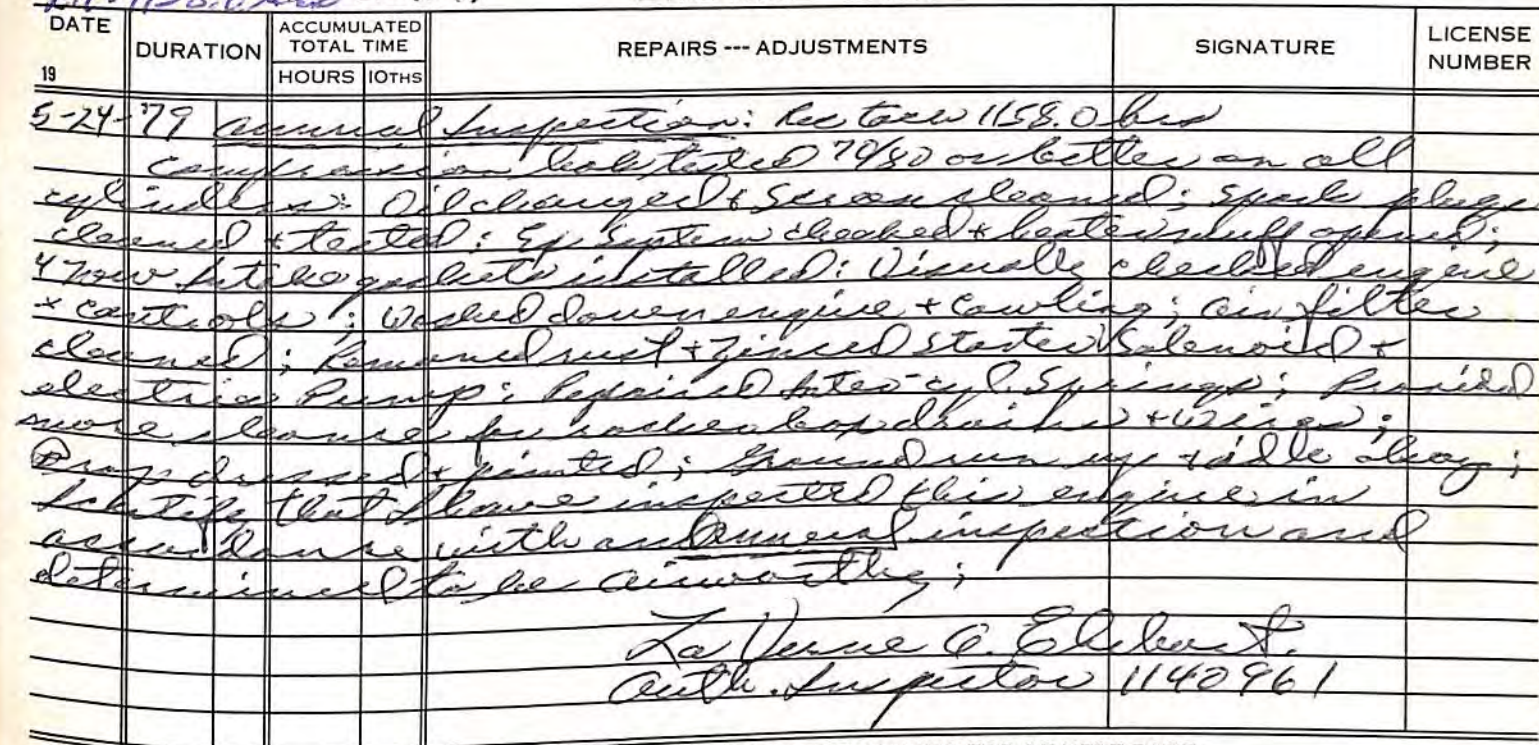 DATE
19
DURATION
ACCUMULATED TOTAL TIME
HOURS 10THS
REPAIRS --- ADJUSTMENTS
SIGNATURE
LICENSE NUMBER
5-24-'79 Annual Inspection: Rec tach 1158.0 hrs
Compression tested 79/80 or better on all
cylinders: Oil changed & Screen cleaned; Spark plugs
cleaned & tested: Ex System checked & heater muff opened;
4 New Intake gaskets installed: Visually checked engine
& controls; Washed down engine & Cowling; air filter
cleaned; Removed rust & Zinced starter Solenoid &
electric Pump: Repaired Inter-cyl. Springs; Provided
more clearance for rocker box drains & Wires;
Prop dressed & painted; Ground run up & idle okay;
I certify that I have inspected this engine in
accordance with an Annual inspection and
determined to be airworthy;
La Verne
Auth. Inspector 1140961